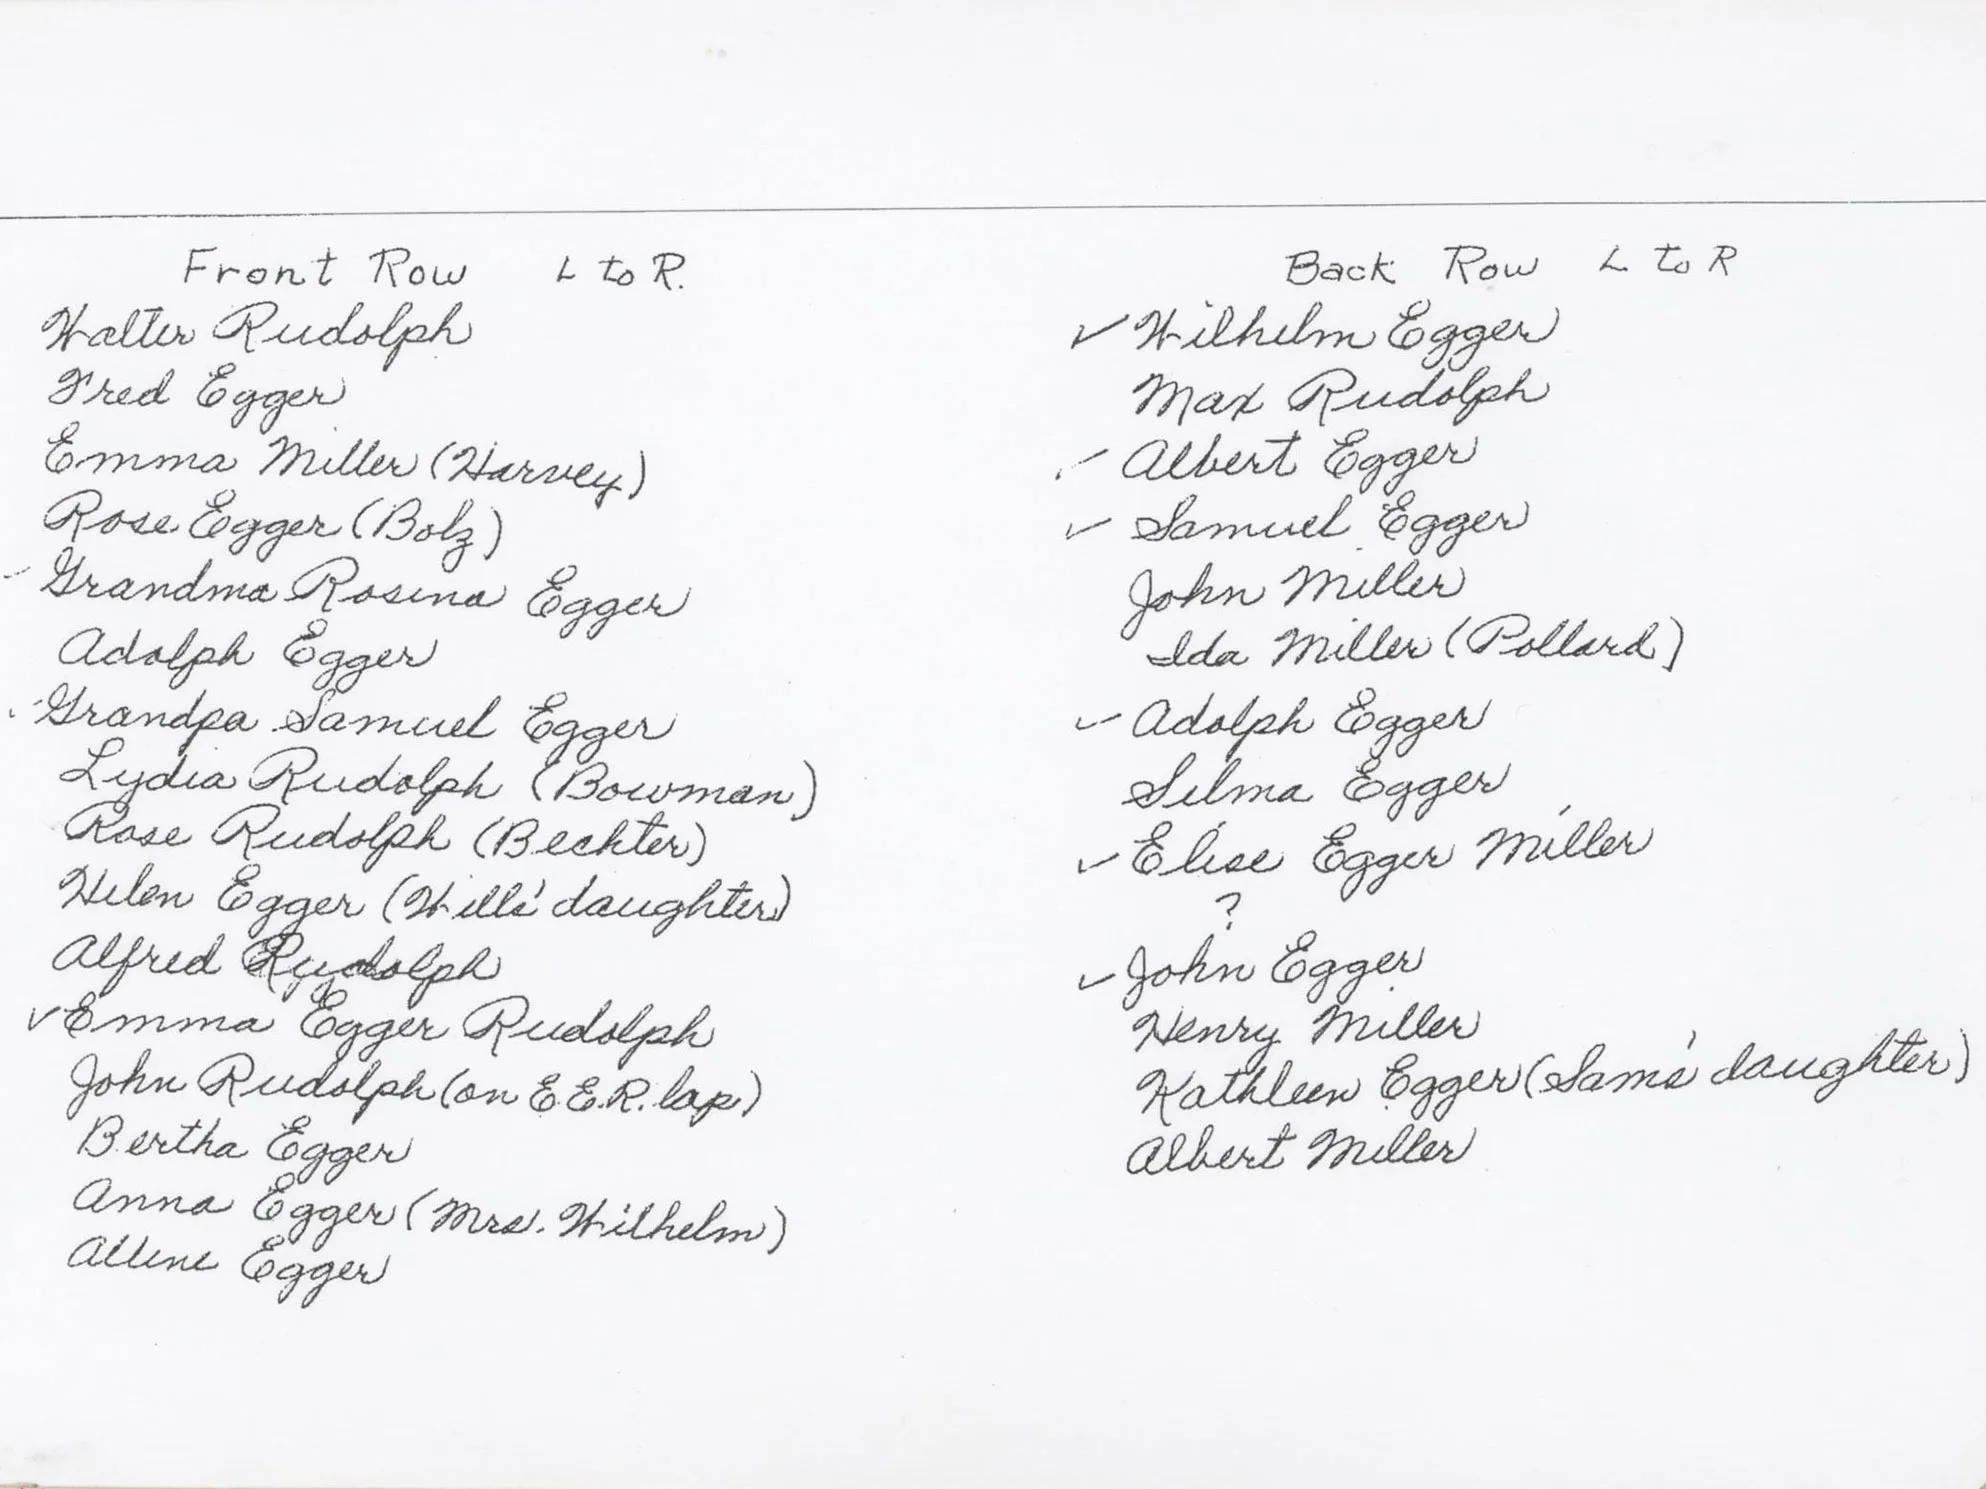 Front Row L to R.
Walter Rudolph
Fred Egger
Emma Miller (Harvey)
Rose Egger (Bolz)
✓ Grandma Rosina Egger
Adolph Egger
✓ Grandpa Samuel Egger
Lydia Rudolph (Bowman)
Rose Rudolph (Bechter)
Helen Egger (Wills' daughter)
Alfred Rudolph
✓ Emma Egger Rudolph
John Rudolph (on E.E.R. lap)
Bertha Egger
Anna Egger (Mrs. Wilhelm)
Allene Egger
Back Row L to R
✓ Wilhelm Egger
Max Rudolph
✓ Albert Egger
✓ Samuel Egger
John Miller
Ida Miller (Pollard)
✓ Adolph Egger
Selma Egger
✓ Elise Egger Miller
?
✓ John Egger
Henry Miller
Kathleen Egger (Sams' daughter)
Albert Miller